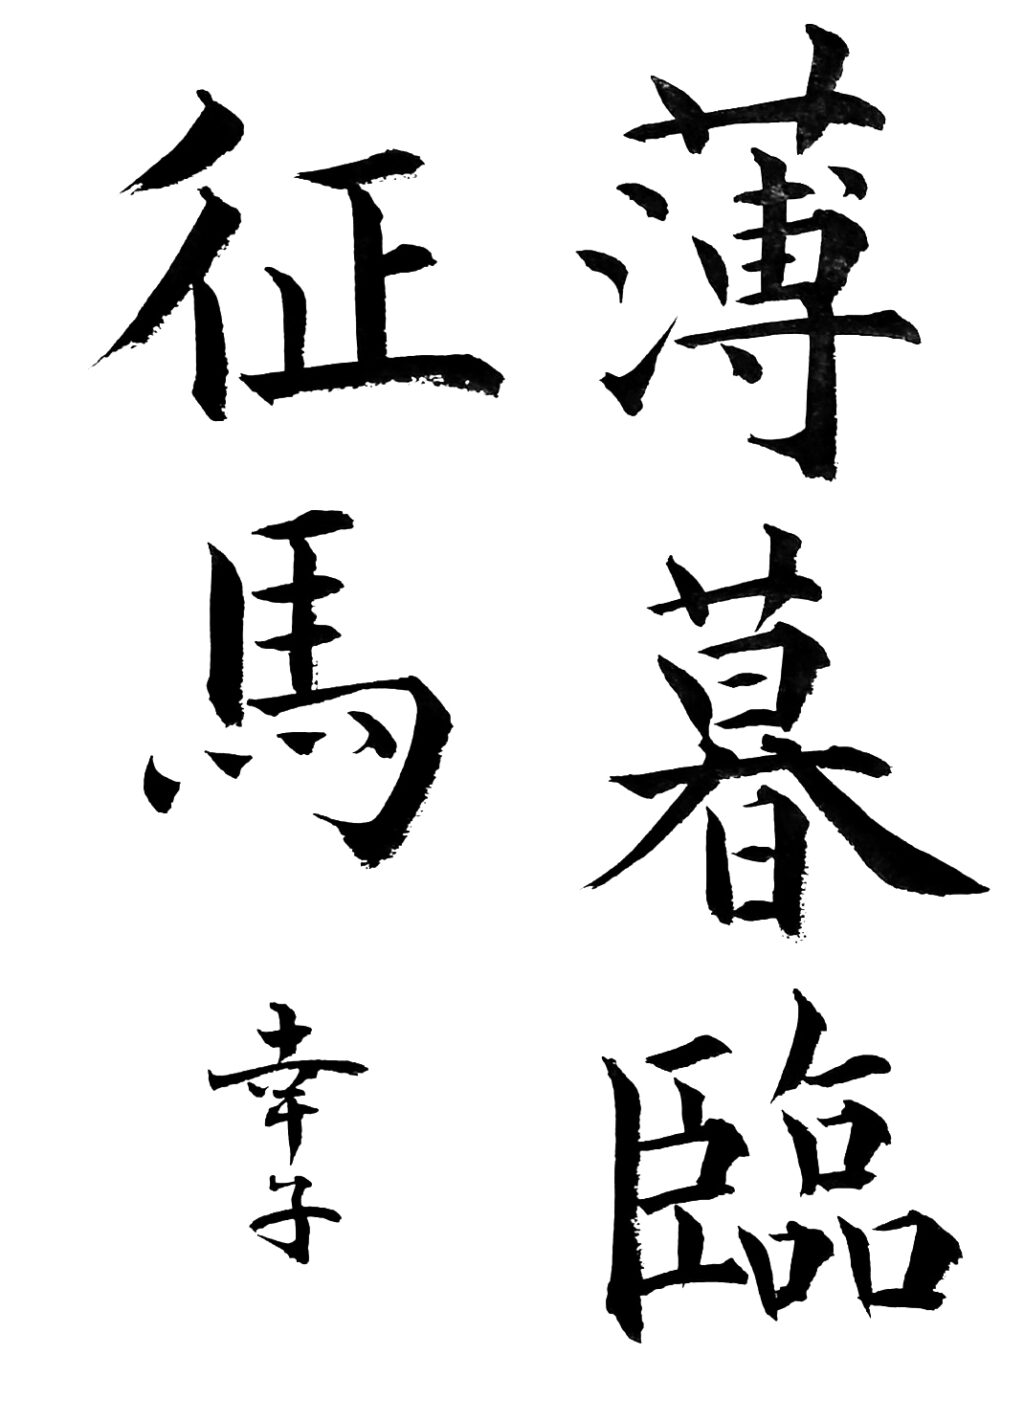 薄暮臨
征馬
幸子